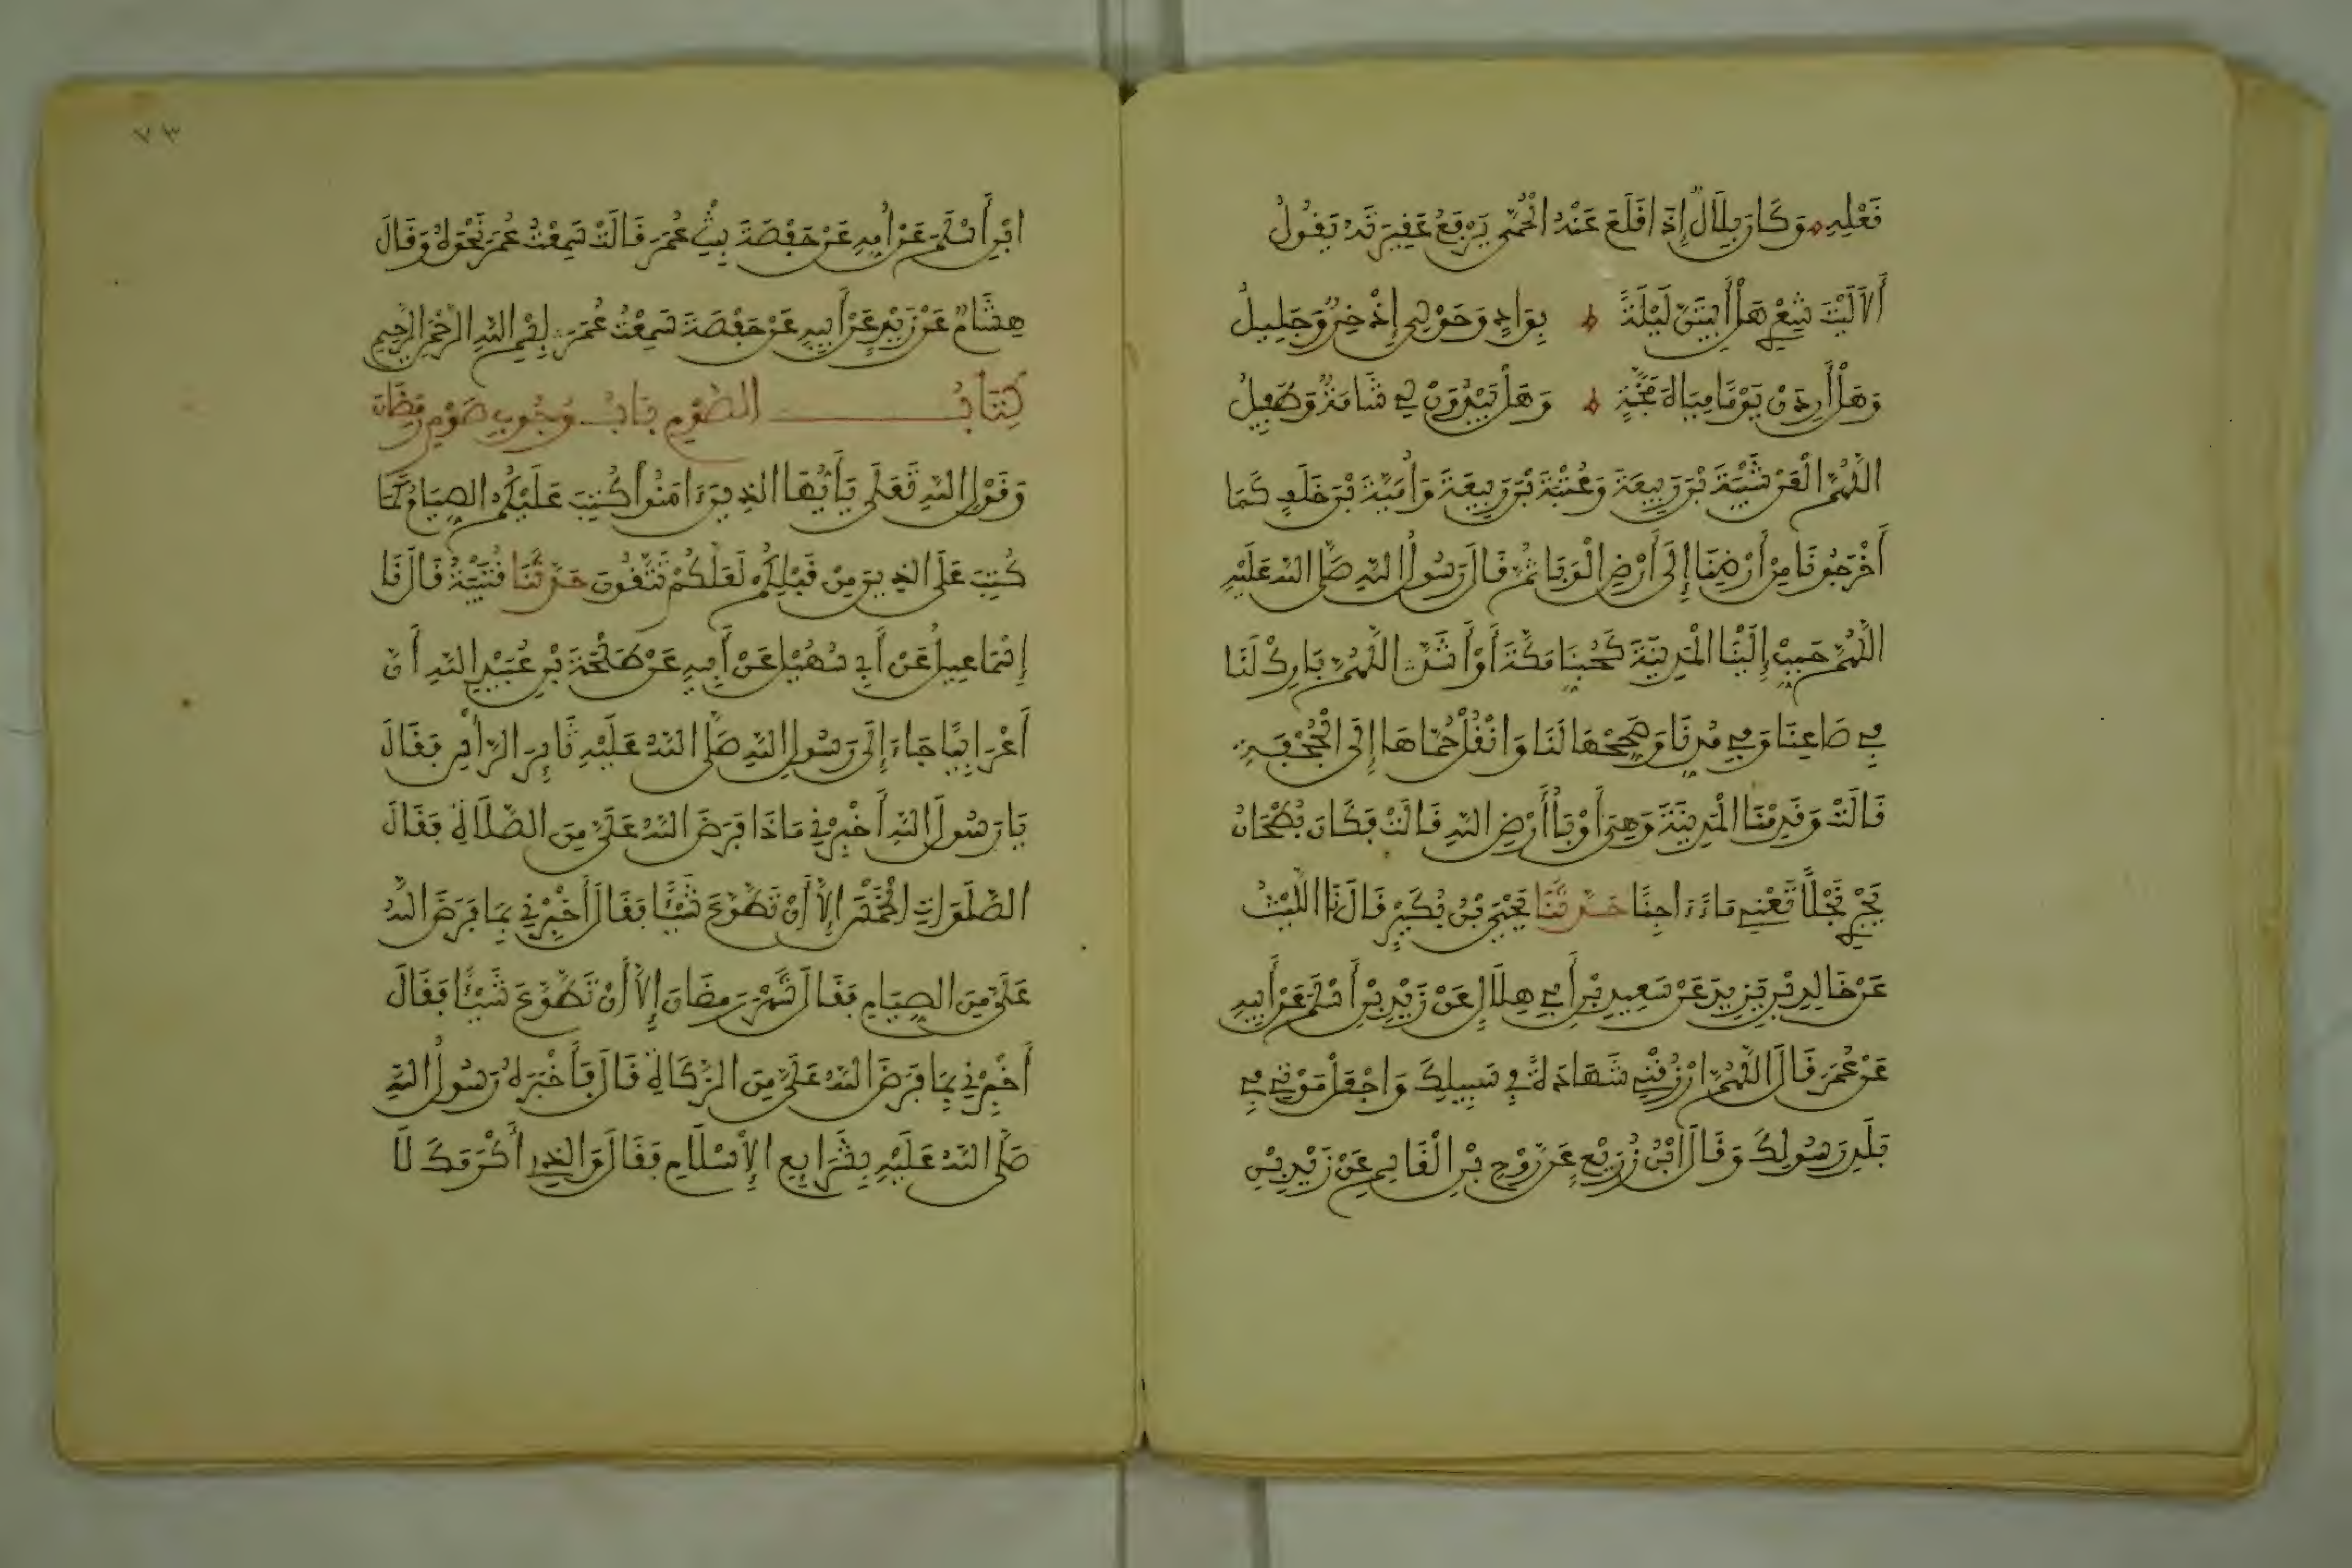 نَعْلِهِ وَكَانَ بِلَالٌ إِذَا اقْلَعَ عَنْهُ الْحُمَّى يَرْفَعُ عَقِيرَتَهُ يَقُولُ
أَلَا لَيْتَ شِعْرِي هَلْ أَبِيتَنَّ لَيْلَةً بِوَادٍ وَحَوْلِي إِذْخِرٌ وَجَلِيلُ
وَهَلْ أَرِدَنْ يَوْمًا مِيَاهَ مَجَنَّةٍ وَهَلْ يَبْدُوَنْ لِي شَامَةٌ وَطَفِيلُ
اللَّهُمَّ الْعَنْ شَيْبَةَ بْنَ رَبِيعَةَ وَعُتْبَةَ بْنَ رَبِيعَةَ وَأُمَيَّةَ بْنَ خَلَفٍ كَمَا
أَخْرَجُونَا مِنْ أَرْضِنَا إِلَى أَرْضِ الْوَبَا ثُمَّ قَالَ رَسُولُ اللَّهِ صَلَّى اللَّهُ عَلَيْهِ
اللَّهُمَّ حَبِّبْ إِلَيْنَا الْمَدِينَةَ كَحُبِّنَا مَكَّةَ أَوْ أَشَدَّ اللَّهُمَّ بَارِكْ لَنَا
فِي صَاعِنَا وَفِي مُدِّنَا وَصَحِّحْهَا لَنَا وَانْقُلْ حُمَّاهَا إِلَى الْجُحْفَةِ
قَالَتْ وَقَدِمْنَا الْمَدِينَةَ وَهِيَ أَوْبَأُ أَرْضِ اللَّهِ قَالَتْ فَكَانَ بُطْحَانُ
يَجْرِي نَجْلًا تَعْنِي مَاءً ءَاجِنًا حَدَّثَنَا يَحْيَى بْنُ بُكَيْرٍ قَالَ نَا اللَّيْثُ
عَنْ خَالِدِ بْنِ يَزِيدَ عَنْ سَعِيدِ بْنِ أَبِي هِلَالٍ عَنْ زَيْدِ بْنِ أَسْلَمَ عَنْ أَبِيهِ
عَنْ عُمَرَ قَالَ اللَّهُمَّ ارْزُقْنِي شَهَادَةً فِي سَبِيلِكَ وَاجْعَلْ مَوْتِي فِي
بَلَدِ رَسُولِكَ وَقَالَ ابْنُ زُرَيْعٍ عَنْ رَوْحِ بْنِ الْقَاسِمِ عَنْ زَيْدِ بْنِ
٧٣
ابْنِ أَسْلَمَ عَنْ أُمِّهِ عَنْ حَفْصَةَ بِنْتِ عُمَرَ قَالَتْ سَمِعْتُ عُمَرَ نَحْوَهُ وَقَالَ
هِشَامٌ عَنْ زَيْدٍ عَنْ أَبِيهِ عَنْ حَفْصَةَ سَمِعْتُ عُمَرَ بِسْمِ اللَّهِ الرَّحْمَنِ الرَّحِيمِ
كِتَابُ الصَّوْمِ بَابُ وُجُوبِ صَوْمِ رَمَضَانَ
وَقَوْلِ اللَّهِ تَعَلَى يَأَيُّهَا الذِينَ ءَامَنُوا كُتِبَ عَلَيْكُمُ الصِّيَامُ كَمَا
كُتِبَ عَلَى الذِينَ مِنْ قَبْلِكُمْ لَعَلَّكُمْ تَتَّقُونَ حَدَّثَنَا قُتَيْبَةُ قَالَ نَا
إِسْمَاعِيلُ عَنْ أَبِي سُهَيْلٍ عَنْ أَبِيهِ عَنْ طَلْحَةَ بْنِ عُبَيْدِ اللَّهِ أَنَّ
أَعْرَابِيًّا جَاءَ إِلَى رَسُولِ اللَّهِ صَلَّى اللَّهُ عَلَيْهِ ثَايِرَ الرَّأْسِ فَقَالَ
يَا رَسُولَ اللَّهِ أَخْبِرْنِي مَاذَا فَرَضَ اللَّهُ عَلَيَّ مِنَ الصَّلَاةِ فَقَالَ
الصَّلَوَاتِ الْخَمْسَ إِلَّا أَنْ تَطَّوَّعَ شَيْئًا فَقَالَ أَخْبِرْنِي بِمَا فَرَضَ اللَّهُ
عَلَيَّ مِنَ الصِّيَامِ فَقَالَ شَهْرَ رَمَضَانَ إِلَّا أَنْ تَطَّوَّعَ شَيْئًا فَقَالَ
أَخْبِرْنِي بِمَا فَرَضَ اللَّهُ عَلَيَّ مِنَ الزَّكَاةِ قَالَ فَأَخْبَرَهُ رَسُولُ اللَّهِ
صَلَّى اللَّهُ عَلَيْهِ بِشَرَايِعِ الْإِسْلَامِ فَقَالَ وَالذِي أَكْرَمَكَ لَا